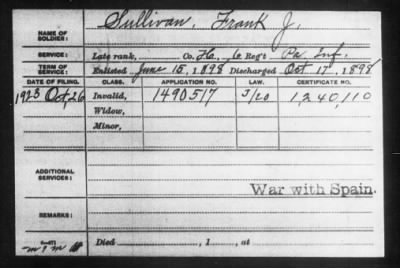 Sullivan, Frank J.
NAME OF SOLDIER:
SERVICE: Late rank, Co. H., 6 Reg't Pa. Inf.
TERM OF SERVICE: Enlisted June 15, 1898 Discharged Oct 17, 1898
DATE OF FILING. CLASS. APPLICATION NO. LAW. CERTIFICATE NO.
1923 Oct, 26 Invalid, 1490517 3/20 1,240,110
Widow,
Minor,
ADDITIONAL SERVICES:
War with Spain.
REMARKS:
Died , 1 , at